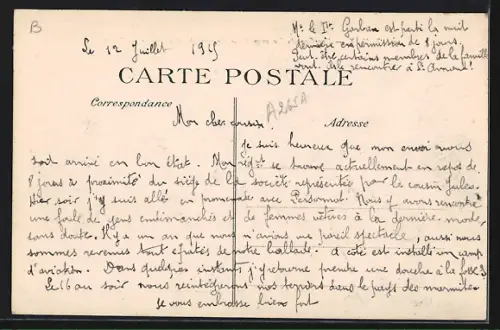 B
Le 12 Juillet 1915
Mr le Dr Garban est parti la nuit
dernière en permission de 8 jours.
Peut être certains membres de la famille
vont-ils le rencontrer à St Amand !
CARTE POSTALE
Correspondance
Adresse
Mon cher cousin.
Je suis heureux que mon envoi vous
soit arrivé en bon état. Mon régt se trouve actuellement en repos de
8 jours à proximité du siège de la société représentée par le cousin Jules.
Hier soir j'y suis allé en promenade avec Personnat. Nous y avons rencontré
une foule de gens endimanchés et de femmes vêtues à la dernière mode,
sans doute. Il y a un an que nous n'avions vu pareil spectacle, aussi nous
sommes revenus tout épatés de notre ballade. A côté est installé un camp
d'aviation. Dans quelques instants j'y retourne prendre une douche à la
Le 16 au soir nous réintégrerons nos terriers dans le pays des marmites
Je vous embrasse bien fort